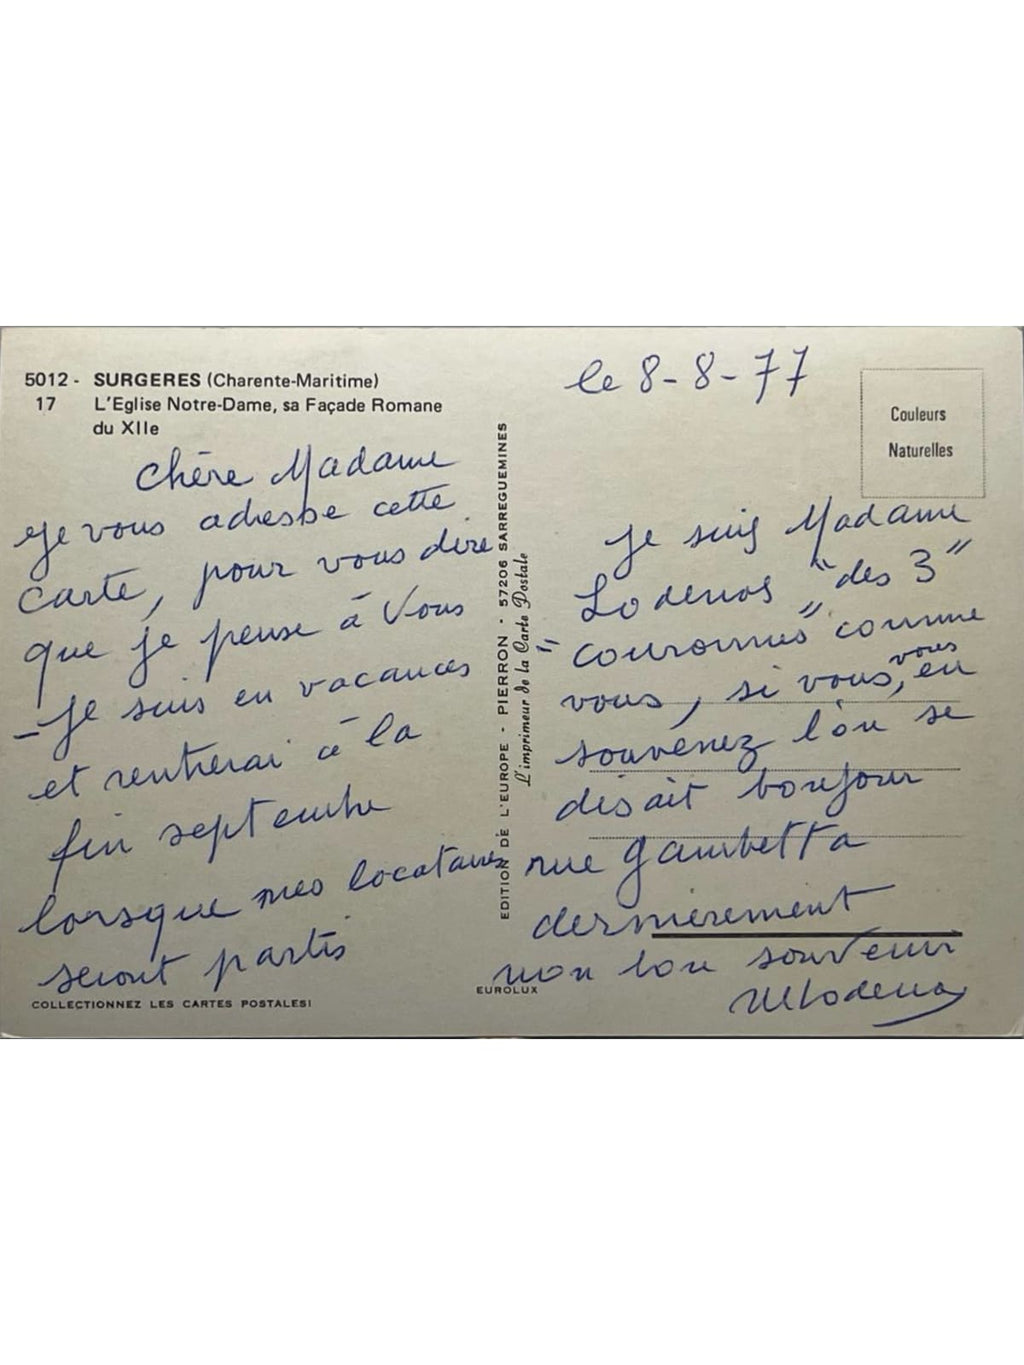 5012 - SURGERES (Charente-Maritime)
17 L'Eglise Notre-Dame, sa Façade Romane
du XIIe
Chère Madame
Je vous adresse cette
carte, pour vous dire
que je pense à Vous
- Je suis en vacances
et rentrerai à la
fin septembre
lorsque mes locataires
seront partis
COLLECTIONNEZ LES CARTES POSTALES!
EDITION DE L'EUROPE - PIERRON - 57206 SARREGUEMINES
L'imprimeur de la Carte Postale
EUROLUX
le 8-8-77
Couleurs
Naturelles
Je suis Madame
Lodenos "des 3"
"couronnes" comme
vous, si vous, vous en
souvenez l'on se
disait bonjour
rue Gambetta
dernièrement
mon bon souvenir